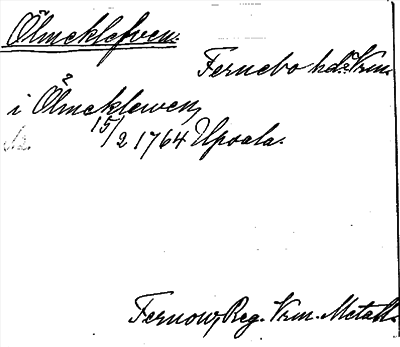 Ölmeklefven.
Fernebo hd. Vrm.
i Ölmeklewen,
15/2 1764 Upsala.
Fernow, Reg. Vrm. Metall.